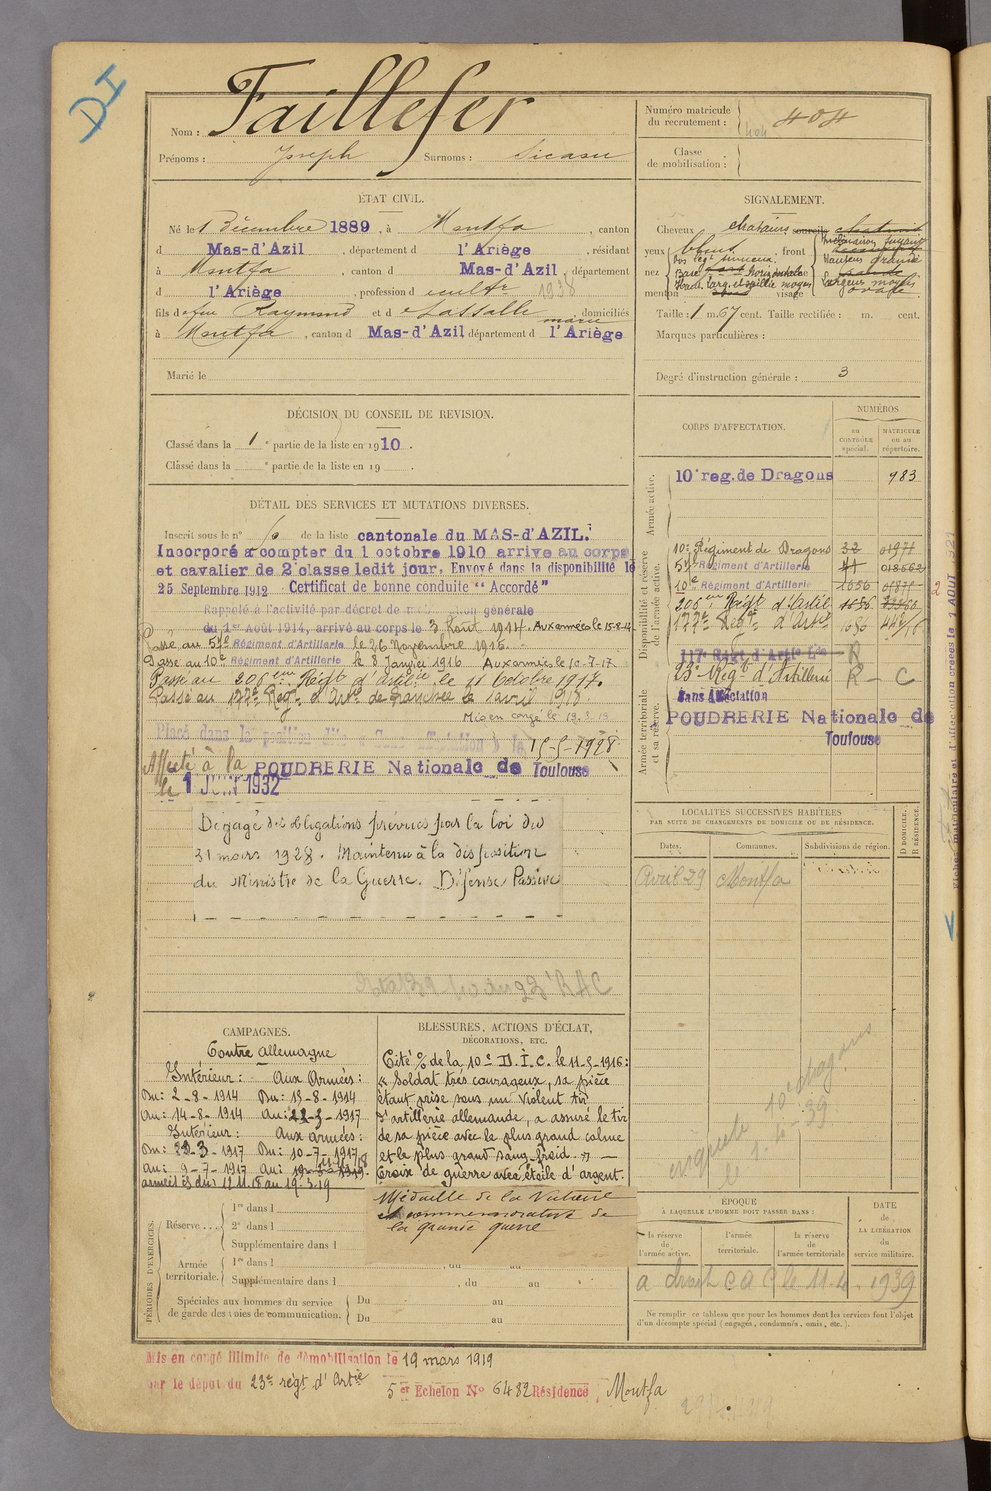 DI
Nom : Taillefer
Prénoms : Joseph Surnoms : Sicaru
Numéro matricule du recrutement : 404
404
Classe de mobilisation :
ÉTAT CIVIL.
Né le 1 Décembre 1889, à Montfa, canton
d Mas-d'Azil, département d l'Ariège, résidant
à Montfa, canton d Mas-d'Azil, département
d l'Ariège, profession de cultr 1938
fils de feu Raymond et de Lassalle marie, domiciliés
à Montfa, canton d Mas-d'Azil département d l'Ariège
Marié le
SIGNALEMENT.
Cheveux chatains sourcils chatains
yeux bleus front Inclinaison fuyant
Hauteur grande
Largeur moyen
nez Dos légt sinueux
Base horizontale
Haut. larg. et saillie moyen
menton visage ovale
Taille : 1 m. 67 cent. Taille rectifiée : m. cent.
Marques particulières :
Degré d'instruction générale : 3
DÉCISION DU CONSEIL DE REVISION.
Classé dans la 1e partie de la liste en 1910.
Classé dans la e partie de la liste en 19 .
DÉTAIL DES SERVICES ET MUTATIONS DIVERSES.
Inscrit sous le n° de la liste cantonale du MAS-d'AZIL.
Incorporé à compter du 1 octobre 1910 arrivé au corps
et cavalier de 2e classe ledit jour. Envoyé dans la disponibilité le
25 Septembre 1912 Certificat de bonne conduite "Accordé"
Rappelé à l'activité par décret de mobilisation générale
du 1er Août 1914, arrivé au corps le 3 Août 1914. Aux armées le 15-8-14
Passé au 57e Régiment d'Artillerie le 26 Novembre 1915.
Passé au 10e Régiment d'Artillerie le 8 Janvier 1916 Aux armées le 10-7-17.
Passé au 206ème Régt d'artilie le 11 Octobre 1917.
Passé au 177e Régt d'Artie de Tranchée le 1 avril 1918
Mis en congé le 19.3.19
Placé dans la position dite « Sans affectation » le 15-5-1928
Affecté à la POUDRERIE Nationale de Toulouse
le 1 JUIN 1932
Dégagé des obligations prévues par la loi du
31 mars 1928. Maintenu à la disposition
du Ministre de la Guerre. Défense Passive
23e RAC
CORPS D'AFFECTATION.
NUMÉROS
AU CONTRÔLE spécial.
MATRICULE ou au répertoire.
Armée active.
10e reg. de Dragons 983
Disponibilité et réserve de l'armée active.
10e Régiment de Dragons 32 01971
57e Régiment d'Artillerie 41 018662
10e Régiment d'Artillerie 1656 01871
206e Régt d'Artie 1656
177e Regt d'Artie 1656
117e Régt d'Artie Lde R
23e Régt d'Artillerie R - C
Armée territoriale et sa réserve.
Sans Affectation
POUDRERIE Nationale de
Toulouse
LOCALITÉS SUCCESSIVES HABITÉES
PAR SUITE DE CHANGEMENTS DE DOMICILE OU DE RÉSIDENCE.
Dates. Communes. Subdivisions de région. D DOMICILE. R RÉSIDENCE.
Avril 29 Montfa
10e dragons
le 1-10-39
CAMPAGNES.
Contre allemagne
Intérieur : Aux Armées :
Du : 2-8-1914 Du : 15-8-1914
au : 14-8-1914 au : 22-3-1917
Intérieur : Aux armées :
Du : 23-3-1917 Du : 10-7-1917
au : 9-7-1917 au :
armées du 12.11.18 au 19-3-19
BLESSURES, ACTIONS D'ÉCLAT,
DÉCORATIONS, ETC.
Cité % de la 10e D.I.C. le 11-5-1916 :
« Soldat très courageux, sa pièce
étant prise sous un violent tir
d'artillerie allemande, a assuré le tir
de sa pièce avec le plus grand calme
et le plus grand sang-froid. » —
Croix de guerre avec étoile d'argent.
Médaille de la Victoire
et commemorative de
la grande guerre
PÉRIODES D'EXERCICES.
Réserve ... 1re dans l
2e dans l
Supplémentaire dans l
Armée territoriale. 1re dans l , du au
Supplémentaire dans l , du au
Spéciales aux hommes du service de garde des voies de communication. Du au
Du au
ÉPOQUE
À LAQUELLE L'HOMME DOIT PASSER DANS :
la réserve de l'armée active.
l'armée territoriale.
la réserve de l'armée territoriale
DATE de LA LIBÉRATION du service militaire.
a droit C a C le 11-4-1939
Ne remplir ce tableau que pour les hommes dont les services font l'objet
d'un décompte spécial (engagés, condamnés, omis, etc.).
Mis en congé illimité de démobilisation le 19 mars 1919
par le dépôt du 23e régt d'Artie 5er Echelon No 6482 Résidence, Montfa